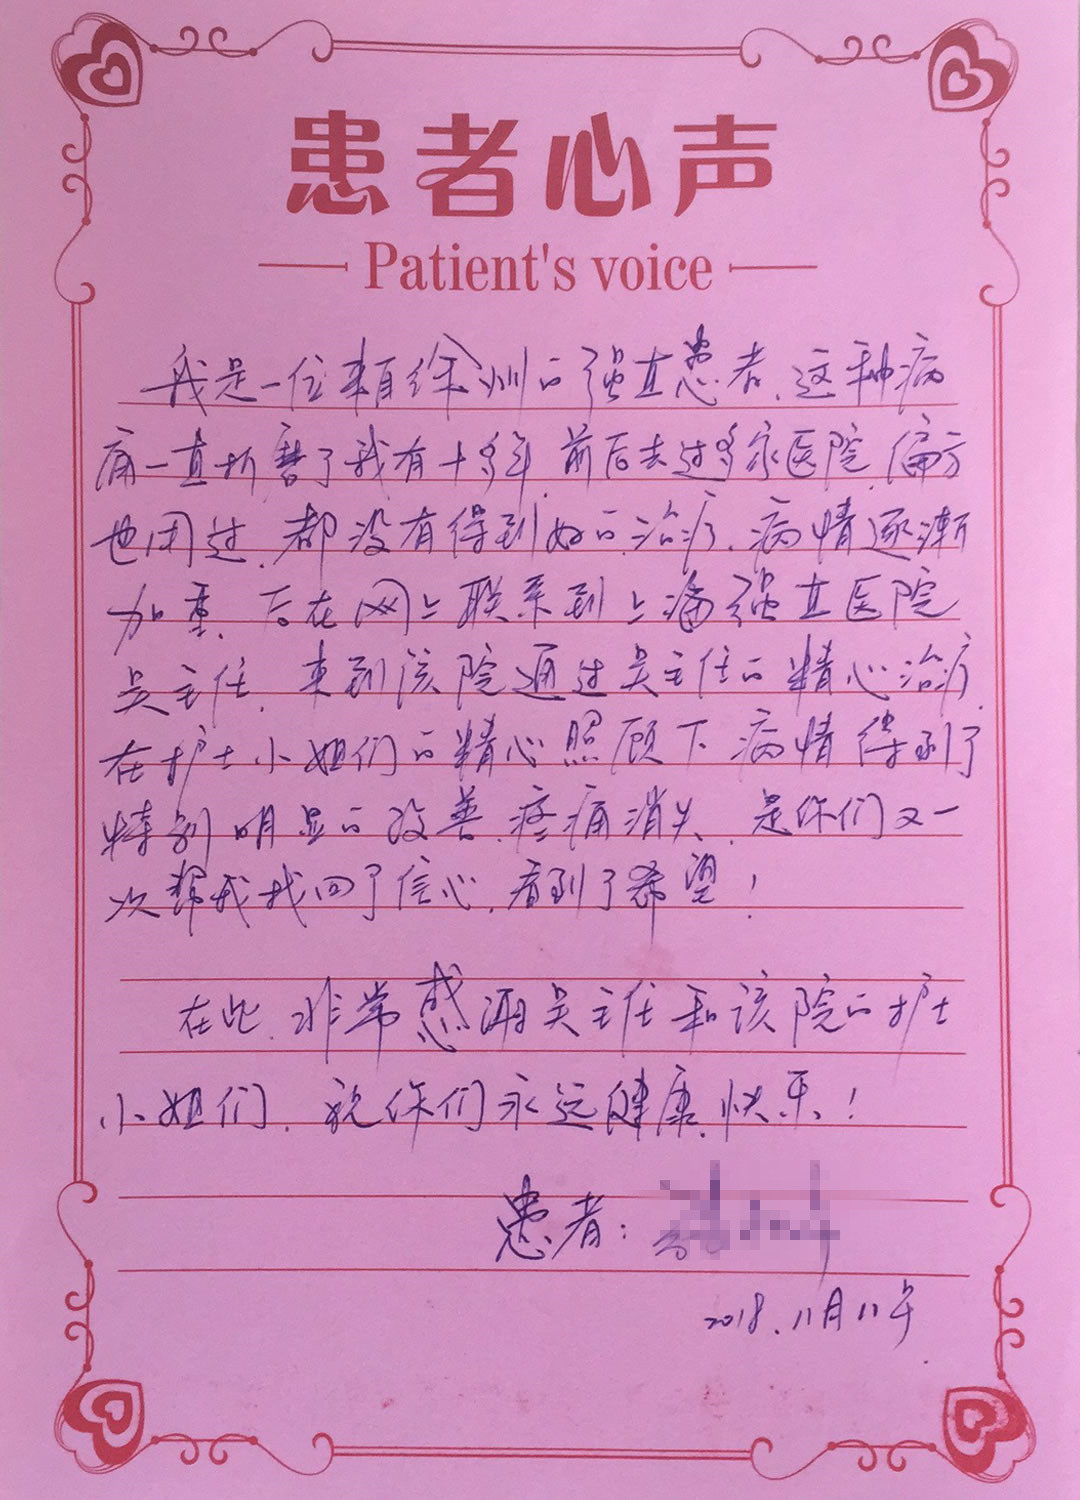 患者心声
Patient's voice
我是一位来自徐州的强直患者，这种病
痛一直折磨了我有十多年，前后去过多家医院，偏方
也用过，都没有得到好的治疗，病情逐渐
加重，后在网上联系到上海强直医院
吴主任，来到该院通过吴主任的精心治疗，
在护士小姐们的精心照顾下，病情得到了
特别明显的改善，疼痛消失，是你们又一
次帮我找回了信心，看到了希望！
在此，非常感谢吴主任和该院的护士
小姐们，祝你们永远健康，快乐！
患者：
2018.11月11号